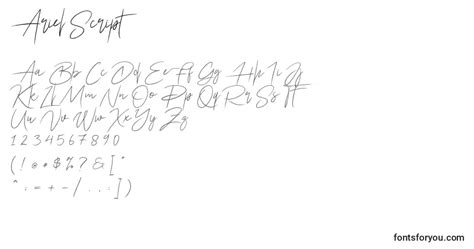 Ariel Script
Aa Bb Cc Dd Ee Ff Gg Hh Ii Jj
Kk Ll Mm Nn Oo Pp Qq Rr Ss Tt
Uu Vv Ww Xx Yy Zz
1 2 3 4 5 6 7 8 9 0
( ! * * $ % ? & [ "
" ; = + - / . , : ] )
fontsforyou.com